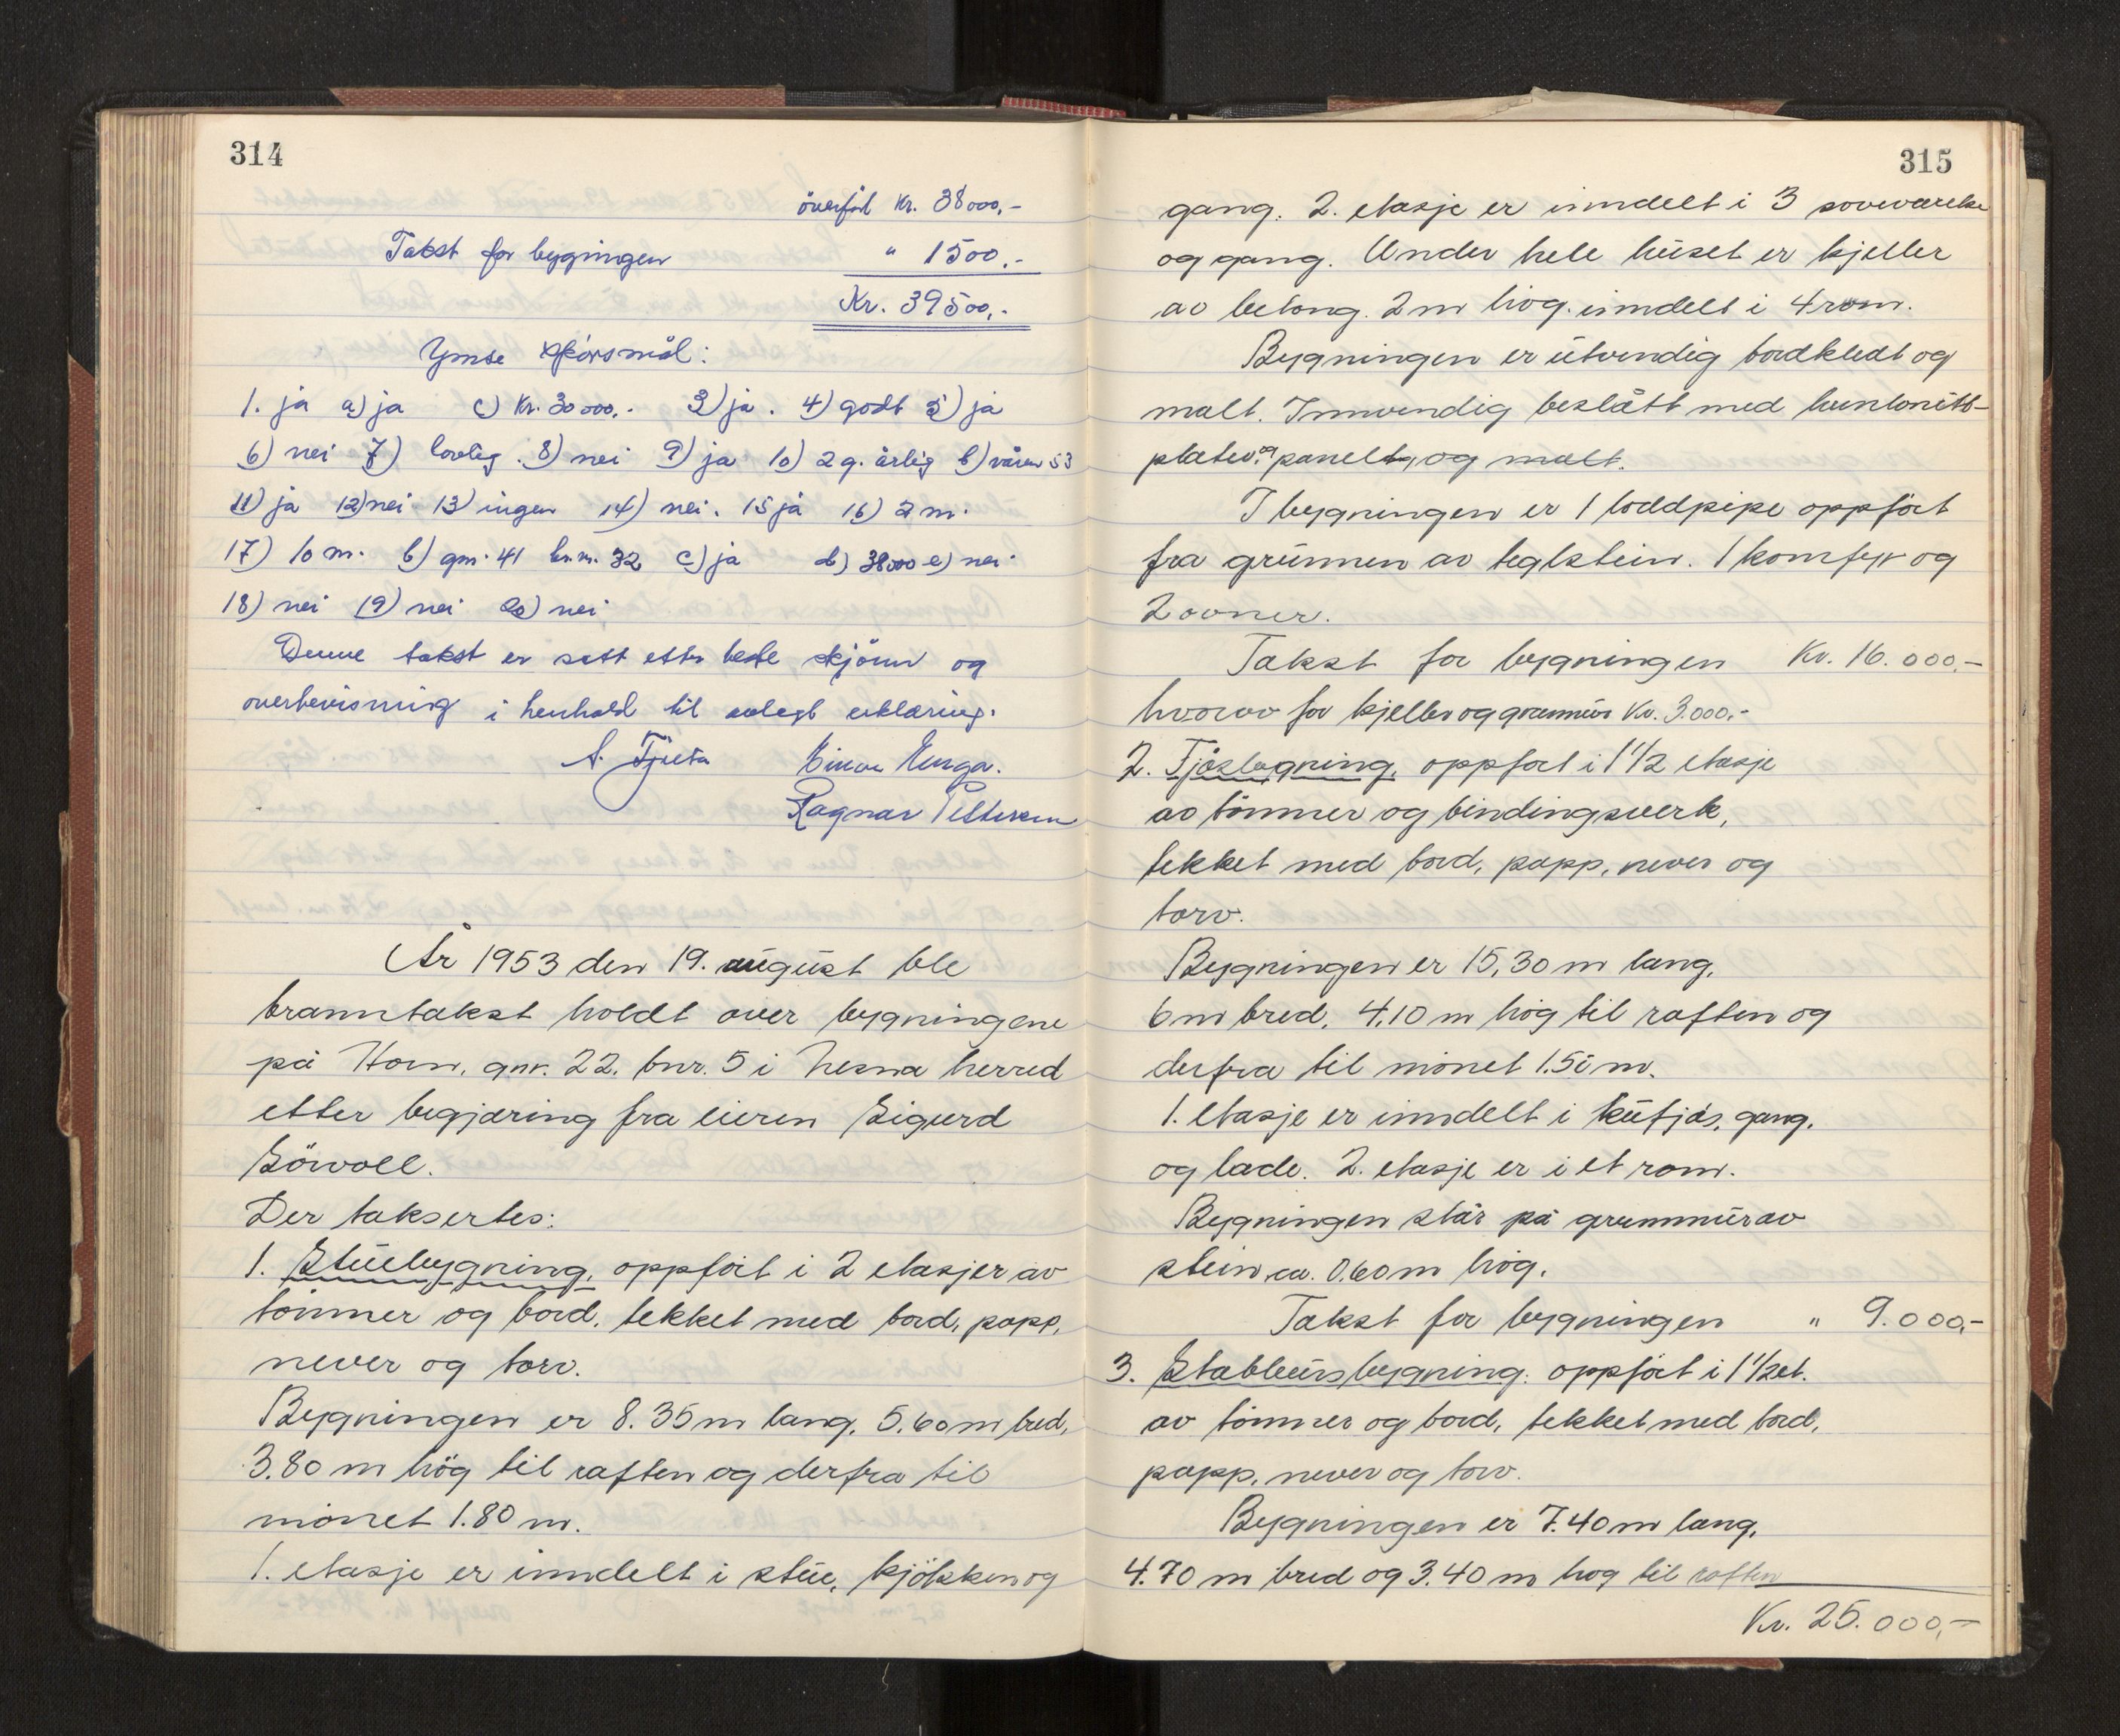 314
överfört Kr. 38000,-
Takst for bygningen " 1500,-
Kr. 39500,-
Ymse spörsmål:
1. ja a) ja c) Kr. 30000,- 3) ja. 4) godt 5) ja
6) nei 7) lovlig. 8) nei 9) ja 10) 2 g. årlig b) våren 53
11) ja 12) nei 13) ingen 14) nei. 15 ja 16) 2 m.
17) 10 m. b) gm. 41 br.m. 32 c) ja d) 38000 e) nei.
18) nei 19) nei 20) nei,
Denne takst er satt etter beste skjönn og
overbevisning i henhold til avlagt erklæring.
A. Tjutta Einar Enga.
Ragnar Pettersen
År 1953 den 19. august ble
branntakst holdt over bygningene
på Horn, gnr. 22. bnr. 5 i Nesna herred
etter begjæring fra eieren Sigurd
Sörvoll.
Der taksertes:
1. Stuebygning, oppfört i 2 etasjer av
tömmer og bord, tekket med bord, papp,
never og torv.
Bygningen er 8.35 m lang, 5.60 m bred,
3.80 m hög til raften og derfra til
mönet 1.80 m.
1. etasje er inndelt i stue, kjökken og
315
gang. 2. etasje er inndelt i 3 soveværelse
og gang. Under hele huset er kjeller
av betong. 2 m hög. inndelt i 4 rom.
Bygningen er utvendig bordkledt og
malt. Innvendig beslått med huntonitt-
plater og panelt, og malt.
I bygningen er 1 loddpipe oppfört
fra grunnen av teglstein. 1 komfyr og
2 ovner.
Takst for bygningen Kr. 16.000,-
hvorav for kjeller og grunnmur Kr. 3.000,-
2. Fjösbygning, oppfört i 1 1/2 etasje
av tömmer og bindingsverk,
tekket med bord, papp, never og
torv.
Bygningen er 15,30 m lang,
6 m bred, 4.10 m hög til raften og
derfra til mönet 1.50 m.
1. etasje er inndelt i kufjös, gang,
og lade. 2. etasje er i et rom.
Bygningen står på grunnmur av
stein, ca. 0.60 m hög.
Takst for bygningen " 9.000,-
3. Stabbursbygning. oppfört i 1 1/2 et.
av tömmer og bord, tekket med bord,
papp, never og torv.
Bygningen er 7.40 m lang,
4.70 m bred og 3.40 m hög til raften
Kr. 25.000,-